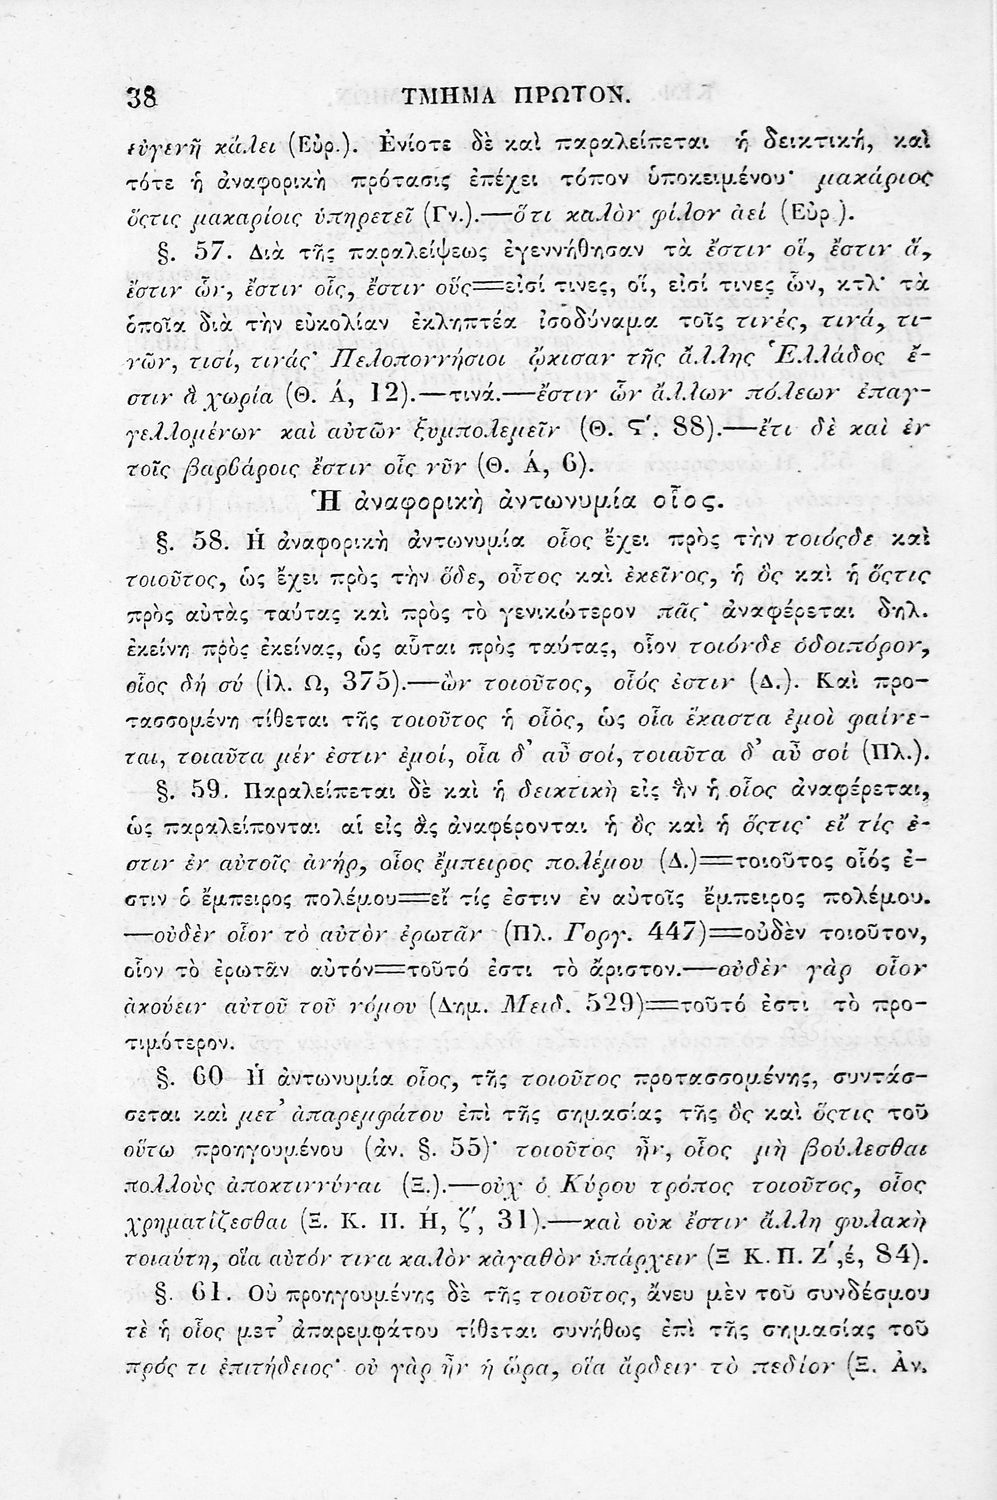 38 ΤΜΗΜΑ ΠΡΩΤΟΝ.
εὐγενῆ κάλει (Εὐρ.). Ἐνίοτε δὲ καὶ παραλείπεται ἡ δεικτική, καὶ
τότε ἡ ἀναφορικὴ πρότασις ἐπέχει τόπον ὑποκειμένου· μακάριος
ὅςτις μακαρίοις ὑπηρετεῖ (Γν.).—ὅτι καλὸν φίλον ἀεί (Εὐρ.).
§. 57. Διὰ τῆς παραλείψεως ἐγεννήθησαν τὰ ἔστιν οἵ, ἔστιν ἅ,
ἔστιν ὧν, ἔστιν οἷς, ἔστιν οὕς=εἰσί τινες, οἵ, εἰσί τινες ὧν, κτλ· τὰ
ὁποῖα διὰ τὴν εὐκολίαν ἐκληπτέα ἰσοδύναμα τοῖς τινές, τινά, τι-
νῶν, τισί, τινάς· Πελοποννήσιοι ᾤκισαν τῆς ἄλλης Ἑλλάδος ἔ-
στιν ἃ χωρία (Θ. Ά, 12).—τινά.—ἔστιν ὧν ἄλλων πόλεων ἐπαγ-
γελλομένων καὶ αὐτῶν ξυμπολεμεῖν (Θ. Ϛ΄. 88).—ἔτι δὲ καὶ ἐν
τοῖς βαρϐάροις ἔστιν οἷς νῦν (Θ. Ά, 6).
Ἡ ἀναφορικὴ ἀντωνυμία οἷος.
§. 58. Ἡ ἀναφορικὴ ἀντωνυμία οἷος ἔχει πρὸς τὴν τοιόςδε καὶ
τοιοῦτος, ὡς ἔχει πρὸς τὴν ὅδε, οὗτος καὶ ἐκεῖνος, ἡ ὃς καὶ ἡ ὅςτις
πρὸς αὐτὰς ταύτας καὶ πρὸς τὸ γενικώτερον πᾶς· ἀναφέρεται δηλ.
ἐκείνη πρὸς ἐκείνας, ὡς αὗται πρὸς ταύτας, οἷον τοιόνδε ὁδοιπόρον,
οἷος δή σύ (Ἰλ. Ω, 375).—ὢν τοιοῦτος, οἷός ἐστιν (Δ.). Καὶ προ-
τασσομένη τίθεται τῆς τοιοῦτος ἡ οἷος, ὡς οἷα ἕκαστα ἐμοὶ φαίνε-
ται, τοιαῦτα μέν ἐστιν ἐμοί, οἷα δ᾽ αὖ σοί, τοιαῦτα δ᾽ αὖ σοί (Πλ.).
§. 59. Παραλείπεται δὲ καὶ ἡ δεικτικὴ εἰς ἣν ἡ οἷος ἀναφέρεται,
ὡς παραλείπονται αἱ εἰς ἃς ἀναφέρονται ἡ ὃς καὶ ἡ ὅςτις· εἴ τίς ἐ-
στιν ἐν αὐτοῖς ἀνήρ, οἷος ἔμπειρος πολέμου (Δ.)=τοιοῦτος οἷός ἐ-
στιν ὁ ἔμπειρος πολέμου=εἴ τίς ἐστιν ἐν αὐτοῖς ἔμπειρος πολέμου.
—οὐδὲν οἷον τὸ αὐτὸν ἐρωτᾶν (Πλ. Γοργ. 447)=οὐδὲν τοιοῦτον,
οἷον τὸ ἐρωτᾶν αὐτόν=τοῦτό ἐστι τὸ ἄριστον.—οὐδὲν γὰρ οἷον
ἀκούειν αὐτοῦ τοῦ νόμου (Δημ. Μειδ. 529)=τοῦτό ἐστι τὸ προ-
τιμότερον.
§. 60 Ἡ ἀντωνυμία οἷος, τῆς τοιοῦτος προτασσομένης, συντάσ-
σεται καὶ μετ᾽ ἀπαρεμφάτου ἐπὶ τῆς σημασίας τῆς ὃς καὶ ὅςτις τοῦ
οὕτω προηγουμένου (ἀν. §. 55)· τοιοῦτος ἦν, οἷος μὴ βούλεσθαι
πολλοὺς ἀποκτιννύναι (Ξ.).—οὐχ ὁ Κύρου τρόπος τοιοῦτος, οἷος
χρηματίζεσθαι (Ξ. Κ. Π. Ή, ζ΄, 31).—καὶ οὐκ ἔστιν ἄλλη φυλακὴ
τοιαύτη, οἵα αὐτόν τινα καλὸν κἀγαθὸν ὑπάρχειν (Ξ Κ. Π. Ζ΄,έ, 84).
§. 61. Οὐ προηγουμένης δὲ τῆς τοιοῦτος, ἄνευ μὲν τοῦ συνδέσμου
τὲ ἡ οἷος μετ᾽ ἀπαρεμφάτου τίθεται συνήθως ἐπὶ τῆς σημασίας τοῦ
πρός τι ἐπιτήδειος· οὐ γὰρ ἦν ἡ ὥρα, οἵα ἄρδειν τὸ πεδίον (Ξ. Ἀν.